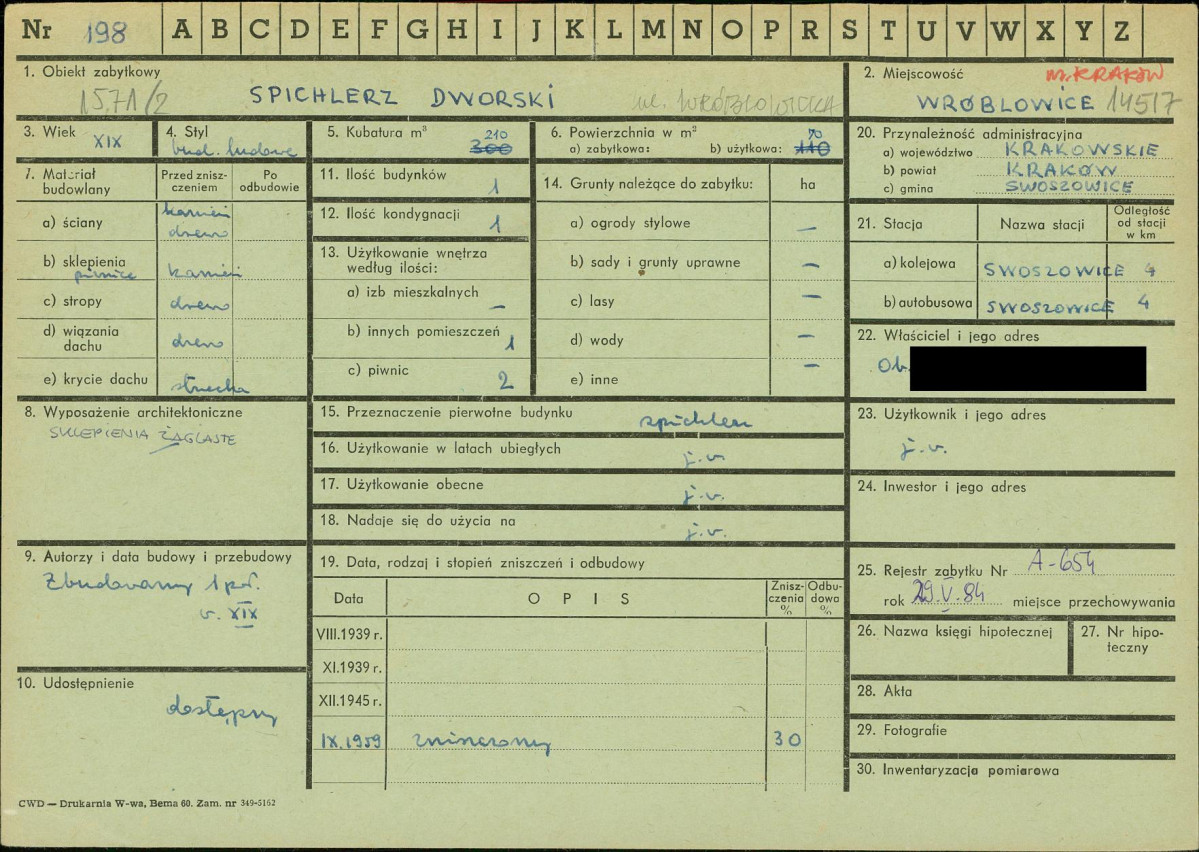 Nr 198 A B C D E F G H I J K L M N O P R S T U V W X Y Z
1. Obiekt zabytkowy
1571/2 SPICHLERZ DWORSKI ul. WRÓBLOWICKA
2. Miejscowość m. KRAKÓW
WRÓBLOWICE 14517
3. Wiek XIX
4. Styl
bud. ludowe
5. Kubatura m³ 210
300
6. Powierzchnia w m² 70
a) zabytkowa: b) użytkowa: 110
7. Materiał budowlany
Przed zniszczeniem
Po odbudowie
a) ściany kamień
drewno
b) sklepienia
piwnice kamień
c) stropy drewno
d) wiązania dachu drewno
e) krycie dachu strzecha
8. Wyposażenie architektoniczne
SKLEPIENIA ŻAGLASTE
9. Autorzy i data budowy i przebudowy
Zbudowany 1 poł.
w. XIX
10. Udostępnienie
dostępny
11. Ilość budynków 1
12. Ilość kondygnacji 1
13. Użytkowanie wnętrza
według ilości:
a) izb mieszkalnych —
b) innych pomieszczeń 1
c) piwnic 2
14. Grunty należące do zabytku: ha
a) ogrody stylowe —
b) sady i grunty uprawne —
c) lasy —
d) wody —
e) inne —
15. Przeznaczenie pierwotne budynku spichlerz
16. Użytkowanie w latach ubiegłych j.w.
17. Użytkowanie obecne j.w.
18. Nadaje się do użycia na j.w.
19. Data, rodzaj i stopień zniszczeń i odbudowy
Data OPIS Zniszczenia % Odbudowa %
VIII.1939 r.
XI.1939 r.
XII.1945 r.
IX.1959 zniszczony 30
20. Przynależność administracyjna
a) województwo KRAKOWSKIE
b) powiat KRAKÓW
c) gmina SWOSZOWICE
21. Stacja Nazwa stacji Odległość od stacji w km
a) kolejowa SWOSZOWICE 4
b) autobusowa SWOSZOWICE 4
22. Właściciel i jego adres
Ob.
23. Użytkownik i jego adres
j.w.
24. Inwestor i jego adres
25. Rejestr zabytku Nr A-654
rok 29.V.84 miejsce przechowywania
26. Nazwa księgi hipotecznej
27. Nr hipoteczny
28. Akta
29. Fotografie
30. Inwentaryzacja pomiarowa
CWD — Drukarnia W-wa, Bema 60. Zam. nr 349-5162